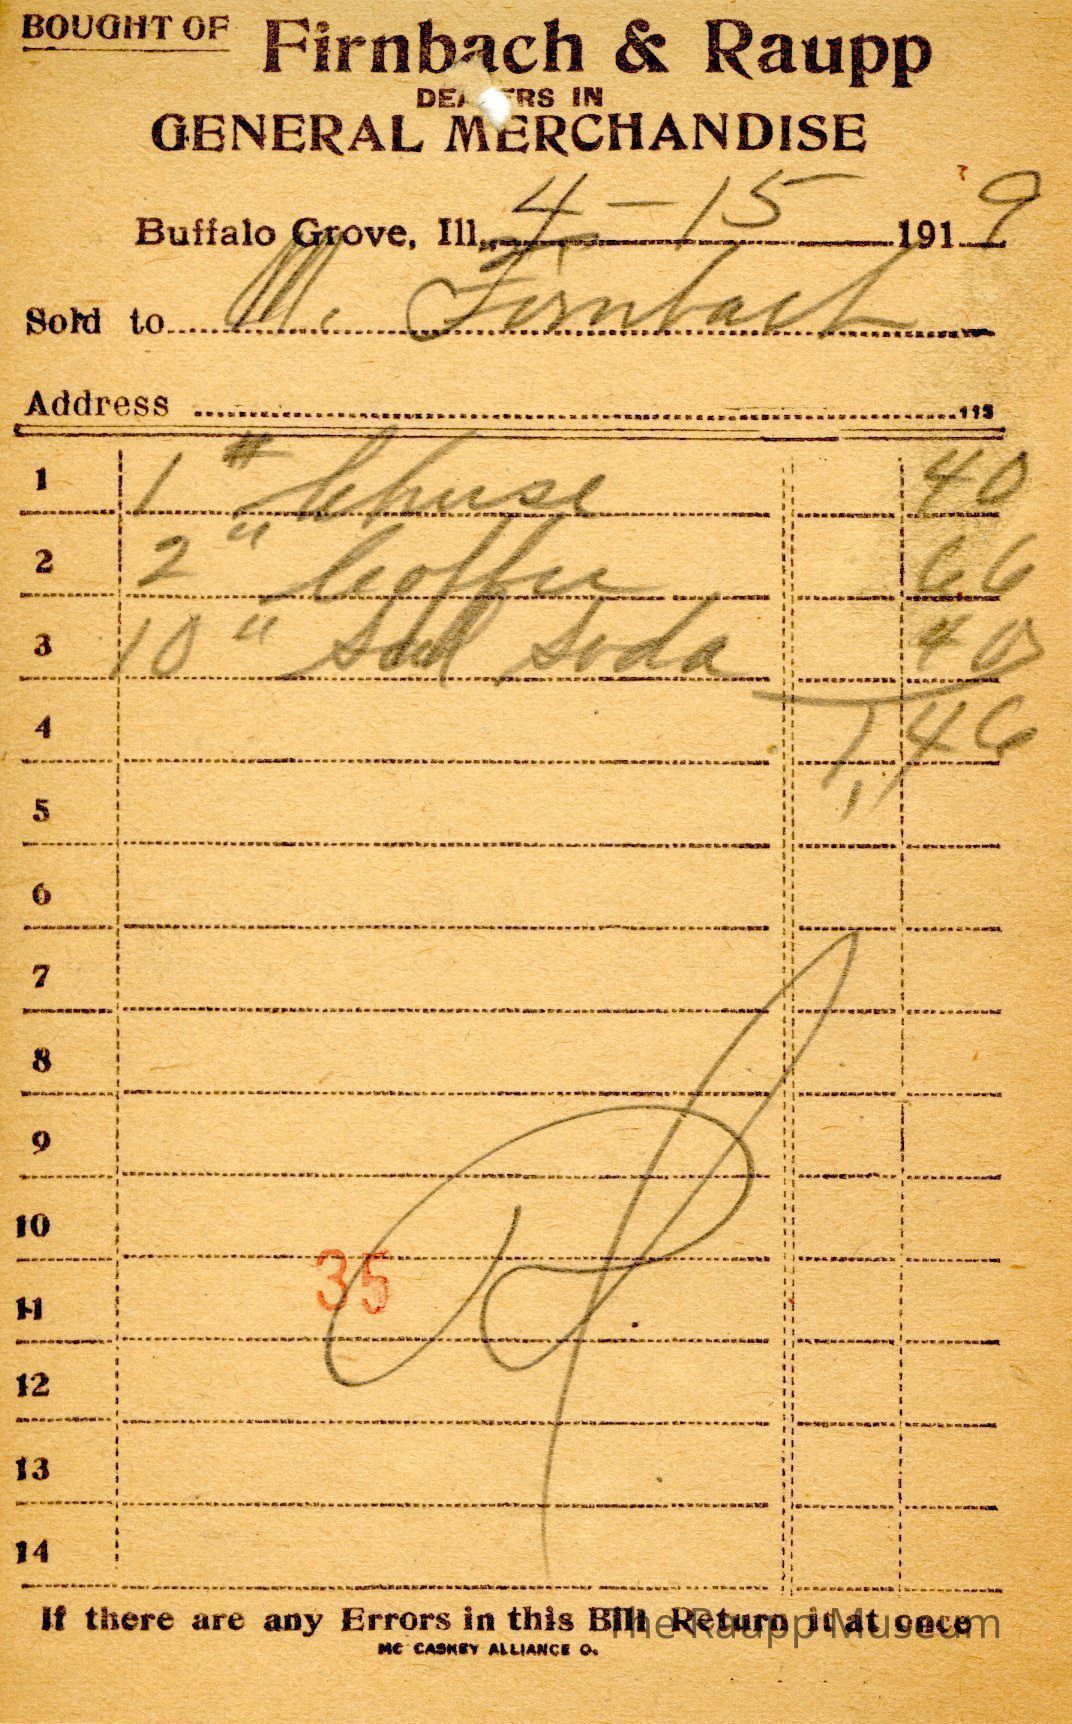 BOUGHT OF Firnbach & Raupp
DEALERS IN
GENERAL MERCHANDISE
Buffalo Grove, Ill., 4-15 1919
Sold to M. Firnbach
Address 113
1 1 # Chuse 40
2 2 " Coffee 66
3 10 " Sal Soda 40
4 1,46
5
6
7
8
9
10
35
11
12
13
14
If there are any Errors in this Bill Return it at once
The Raupp Museum
MC CASKEY ALLIANCE O.